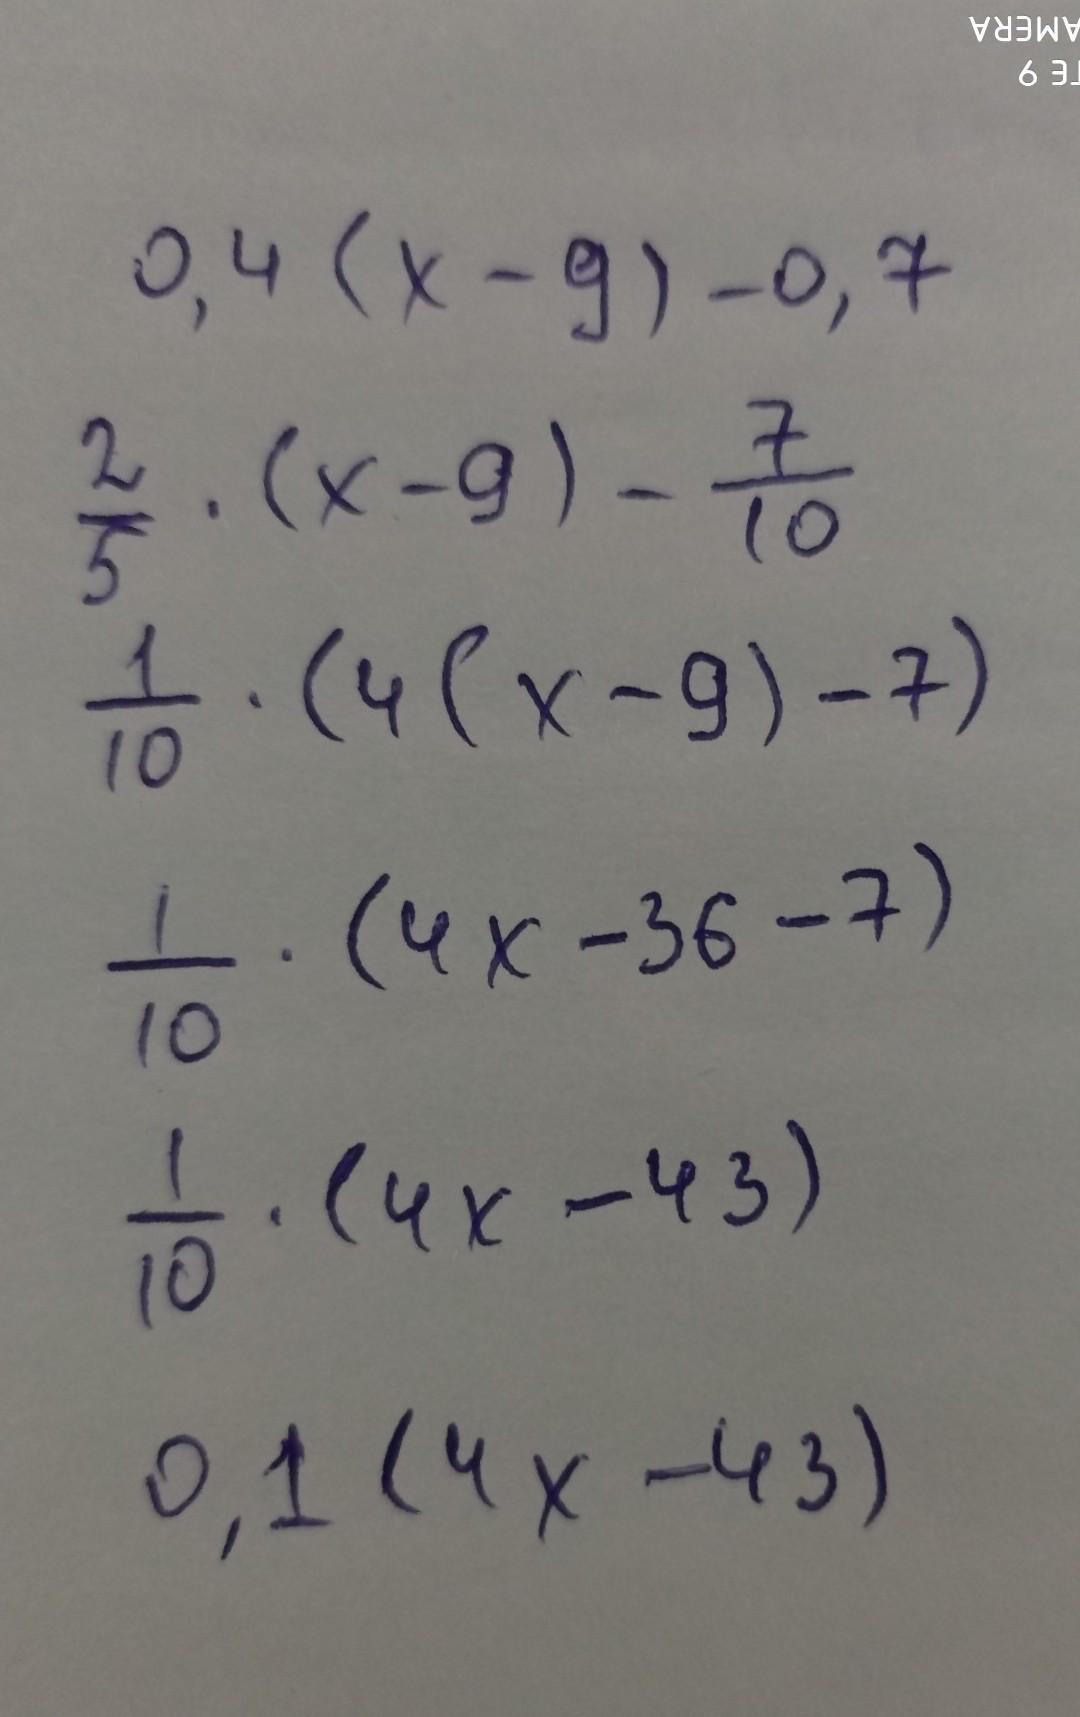 0,4(x-9)-0,7
2/5 · (x-9) - 7/10
1/10 · (4(x-9)-7)
1/10 · (4x-36-7)
1/10 · (4x-43)
0,1(4x-43)